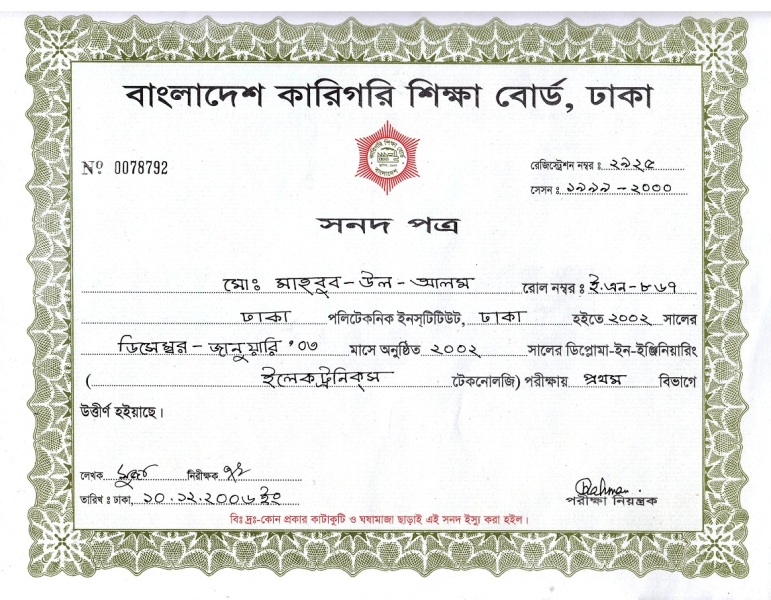 বাংলাদেশ কারিগরি শিক্ষা বোর্ড, ঢাকা
Nº 0078792
রেজিস্ট্রেশন নম্বর : ২৯২৫
সেসন : ১৯৯৯ - ২০০০
সনদ পত্র
মোঃ মাহবুব - উল - আলম রোল নম্বর : ই.এন - ৮৬৭
ঢাকা পলিটেকনিক ইনস্টিটিউট, ঢাকা হইতে ২০০২ সালের
ডিসেম্বর - জানুয়ারি '০৩ মাসে অনুষ্ঠিত ২০০২ সালের ডিপ্লোমা-ইন-ইঞ্জিনিয়ারিং
( ইলেকট্রনিক্স টেকনোলজি) পরীক্ষায় প্রথম বিভাগে
উত্তীর্ণ হইয়াছে।
লেখক নিরীক্ষক
তারিখ : ঢাকা, ১০.১২.২০০৬ ইং
Rahman
পরীক্ষা নিয়ন্ত্রক
বিঃ দ্রঃ-কোন প্রকার কাটাকুটি ও ঘষামাজা ছাড়াই এই সনদ ইস্যু করা হইল।